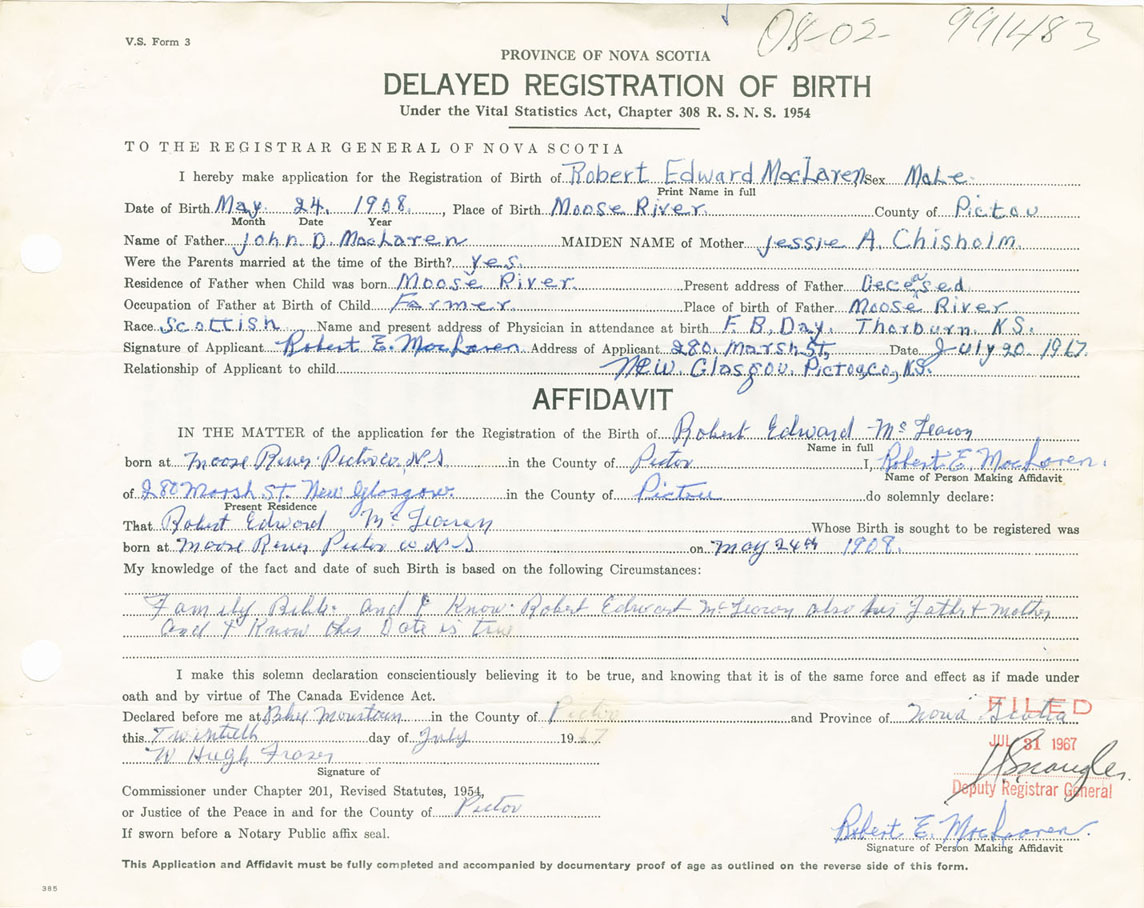 08-02- 991483
V.S. Form 3
PROVINCE OF NOVA SCOTIA
DELAYED REGISTRATION OF BIRTH
Under the Vital Statistics Act, Chapter 308 R. S. N. S. 1954
TO THE REGISTRAR GENERAL OF NOVA SCOTIA
I hereby make application for the Registration of Birth of Robert Edward MacLaren Sex Male
Print Name in full
Date of Birth May 24, 1908, Place of Birth Moose River County of Pictou
Month Date Year
Name of Father John D. MacLaren MAIDEN NAME of Mother Jessie A. Chisholm
Were the Parents married at the time of the Birth? yes
Residence of Father when Child was born Moose River Present address of Father Deceased
Occupation of Father at Birth of Child Farmer Place of birth of Father Moose River
Race Scottish Name and present address of Physician in attendance at birth F. B. Day. Thorburn N.S.
Signature of Applicant Robert E. MacLaren Address of Applicant 280 Marsh St, Date July 20 1967
Relationship of Applicant to child New Glasgow Pictou co, N.S.
AFFIDAVIT
IN THE MATTER of the application for the Registration of the Birth of Robert Edward
Name in full
born at Moose River Pictou co, N.S in the County of Pictou I, Robert E. MacLaren.
Name of Person Making Affidavit
of 280 Marsh St. New Glasgow in the County of Pictou do solemnly declare:
Present Residence
That Robert Edward Whose Birth is sought to be registered was
born at Moose River Pictou co N.S on May 24th 1908.
My knowledge of the fact and date of such Birth is based on the following Circumstances:
Family Bible and I Know Robert Edward also his Father & mother
and I Know this Date is true
I make this solemn declaration conscientiously believing it to be true, and knowing that it is of the same force and effect as if made under
oath and by virtue of The Canada Evidence Act.
Declared before me at in the County of Pictou and Province of Nova Scotia
FILED
this Twentieth day of July 1967
JUL 31 1967
W Hugh Fraser
Signature of
Deputy Registrar General
Commissioner under Chapter 201, Revised Statutes, 1954,
or Justice of the Peace in and for the County of Pictou
If sworn before a Notary Public affix seal.
Robert E. MacLaren.
Signature of Person Making Affidavit
This Application and Affidavit must be fully completed and accompanied by documentary proof of age as outlined on the reverse side of this form.
385